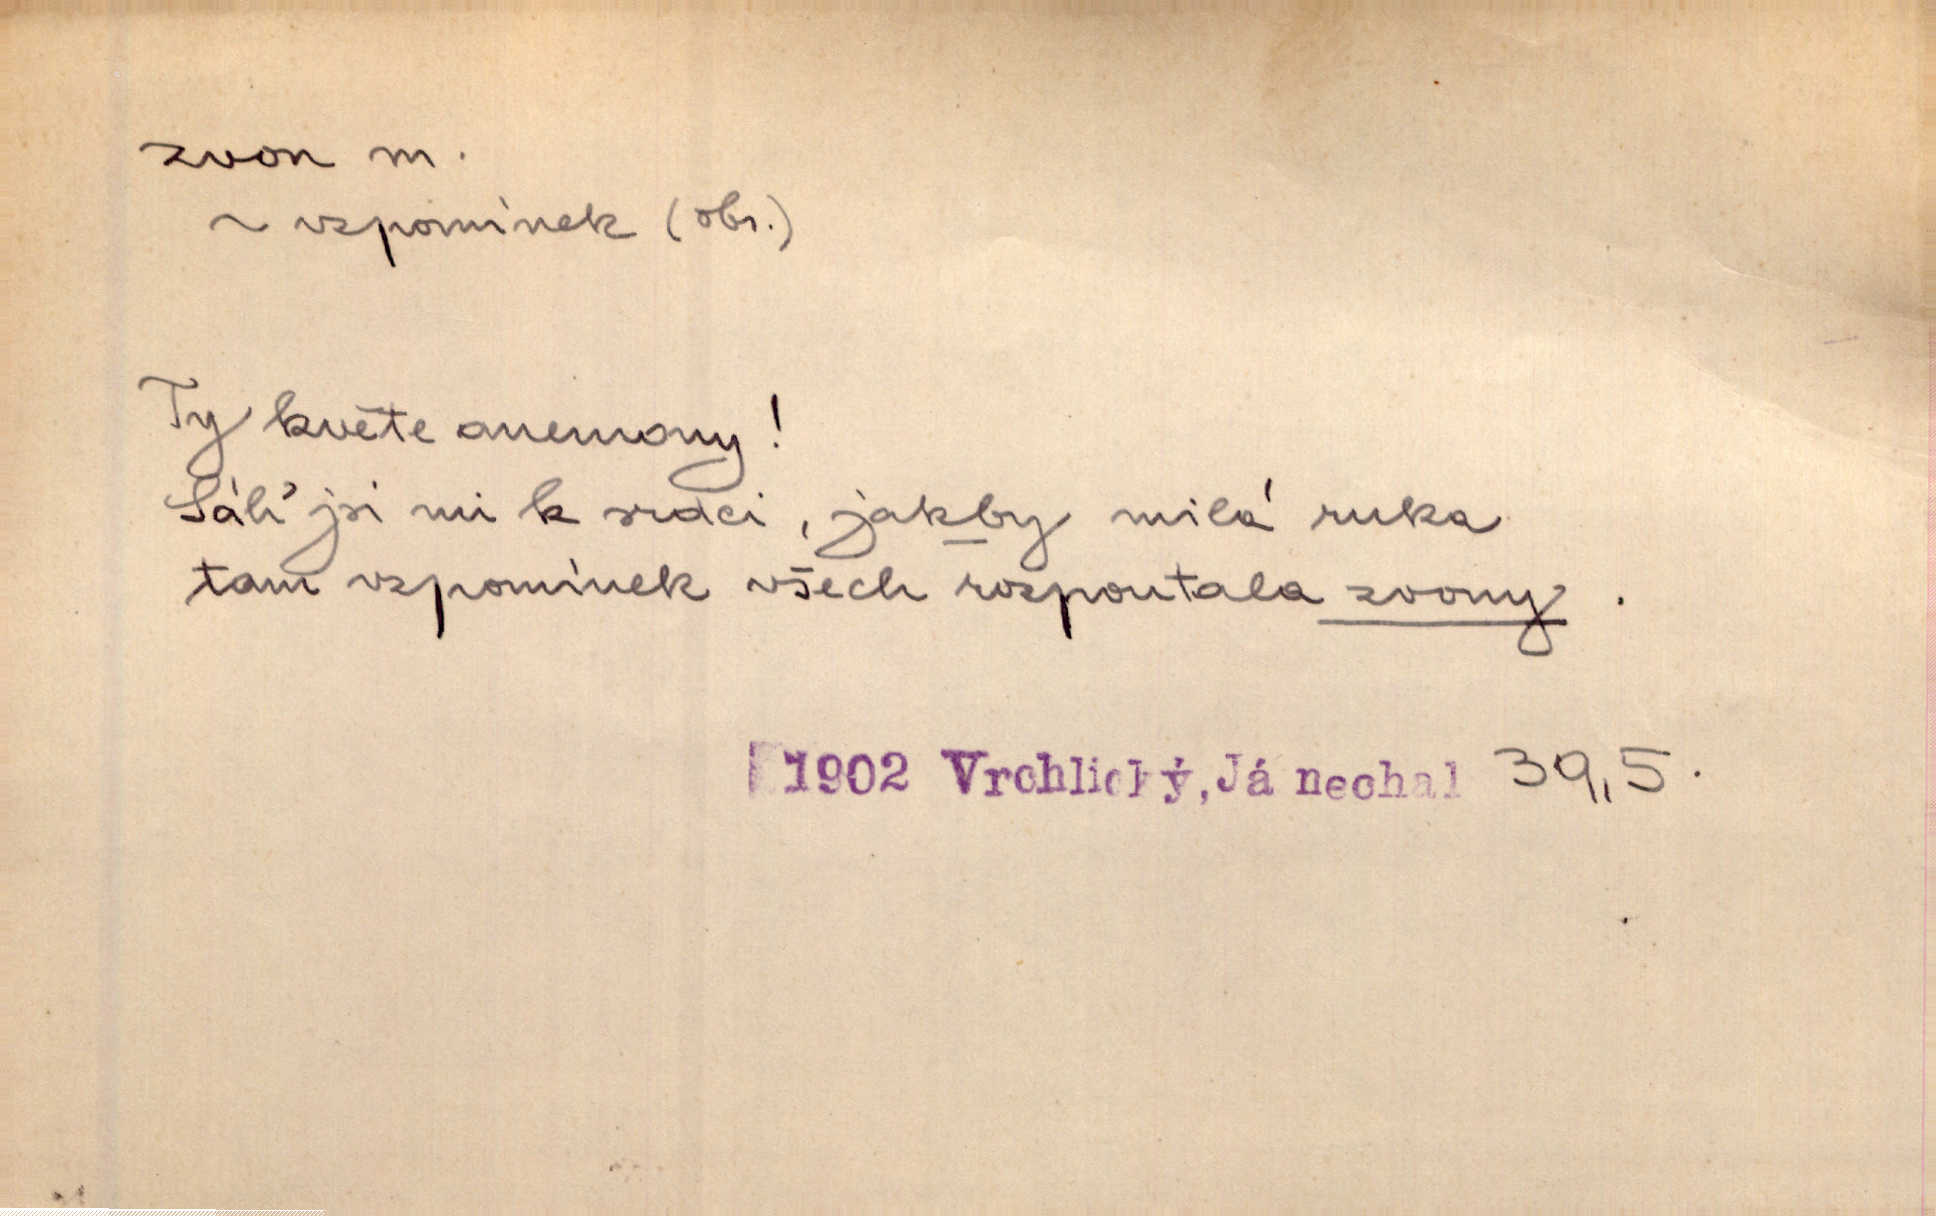 zvon m.
~ vzpomínek (obr.)
Ty květe anemony!
Sáh' jsi mi k srdci, jakby milá ruka
tam vzpomínek všech rozpoutala zvony.
1902 Vrchlický, Já nechal 39,5.